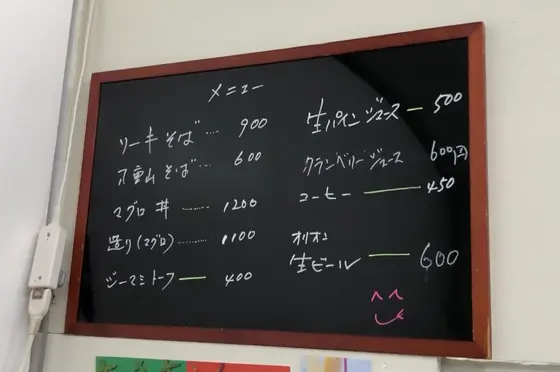 メニュー
ソーキそば…. 900
八重山そば… 600
マグロ丼 ……… 1200
造り(マグロ)……… 1100
ジーマミトーフ — 400
生パインジュース — 500
クランベリージュース 600
コーヒー — 450
オリオン
生ビール — 600